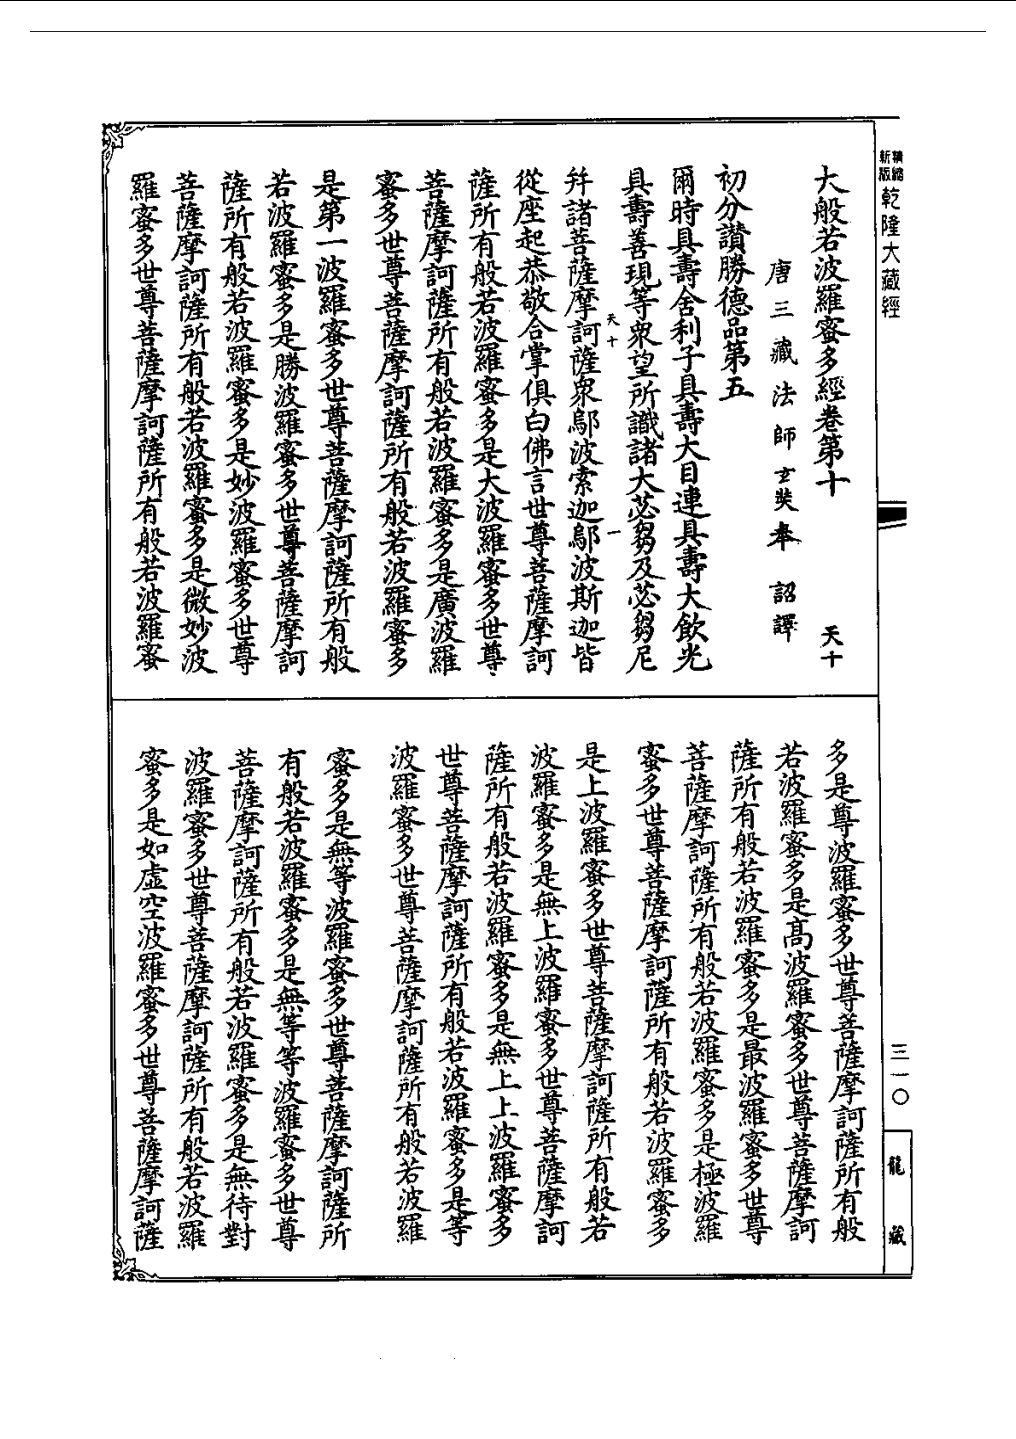 精縮
新版
乾隆大藏經
大般若波羅蜜多經卷第十
天十
唐三藏法師玄奘奉
詔譯
初分讚勝德品第五
爾時具壽舍利子具壽大目連具壽大飲光
具壽善現等眾望所識諸大苾芻及苾芻尼
天十
一
幷諸菩薩摩訶薩眾鄔波索迦鄔波斯迦皆
從座起恭敬合掌俱白佛言世尊菩薩摩訶
薩所有般若波羅蜜多是大波羅蜜多世尊
菩薩摩訶薩所有般若波羅蜜多是廣波羅
蜜多世尊菩薩摩訶薩所有般若波羅蜜多
是第一波羅蜜多世尊菩薩摩訶薩所有般
若波羅蜜多是勝波羅蜜多世尊菩薩摩訶
薩所有般若波羅蜜多是妙波羅蜜多世尊
菩薩摩訶薩所有般若波羅蜜多是微妙波
羅蜜多世尊菩薩摩訶薩所有般若波羅蜜
多是尊波羅蜜多世尊菩薩摩訶薩所有般
若波羅蜜多是高波羅蜜多世尊菩薩摩訶
薩所有般若波羅蜜多是最波羅蜜多世尊
菩薩摩訶薩所有般若波羅蜜多是極波羅
蜜多世尊菩薩摩訶薩所有般若波羅蜜多
是上波羅蜜多世尊菩薩摩訶薩所有般若
波羅蜜多是無上波羅蜜多世尊菩薩摩訶
薩所有般若波羅蜜多是無上上波羅蜜多
世尊菩薩摩訶薩所有般若波羅蜜多是等
波羅蜜多世尊菩薩摩訶薩所有般若波羅
蜜多是無等波羅蜜多世尊菩薩摩訶薩所
有般若波羅蜜多是無等等波羅蜜多世尊
菩薩摩訶薩所有般若波羅蜜多是無待對
波羅蜜多世尊菩薩摩訶薩所有般若波羅
蜜多是如虛空波羅蜜多世尊菩薩摩訶薩
三一〇
龍藏